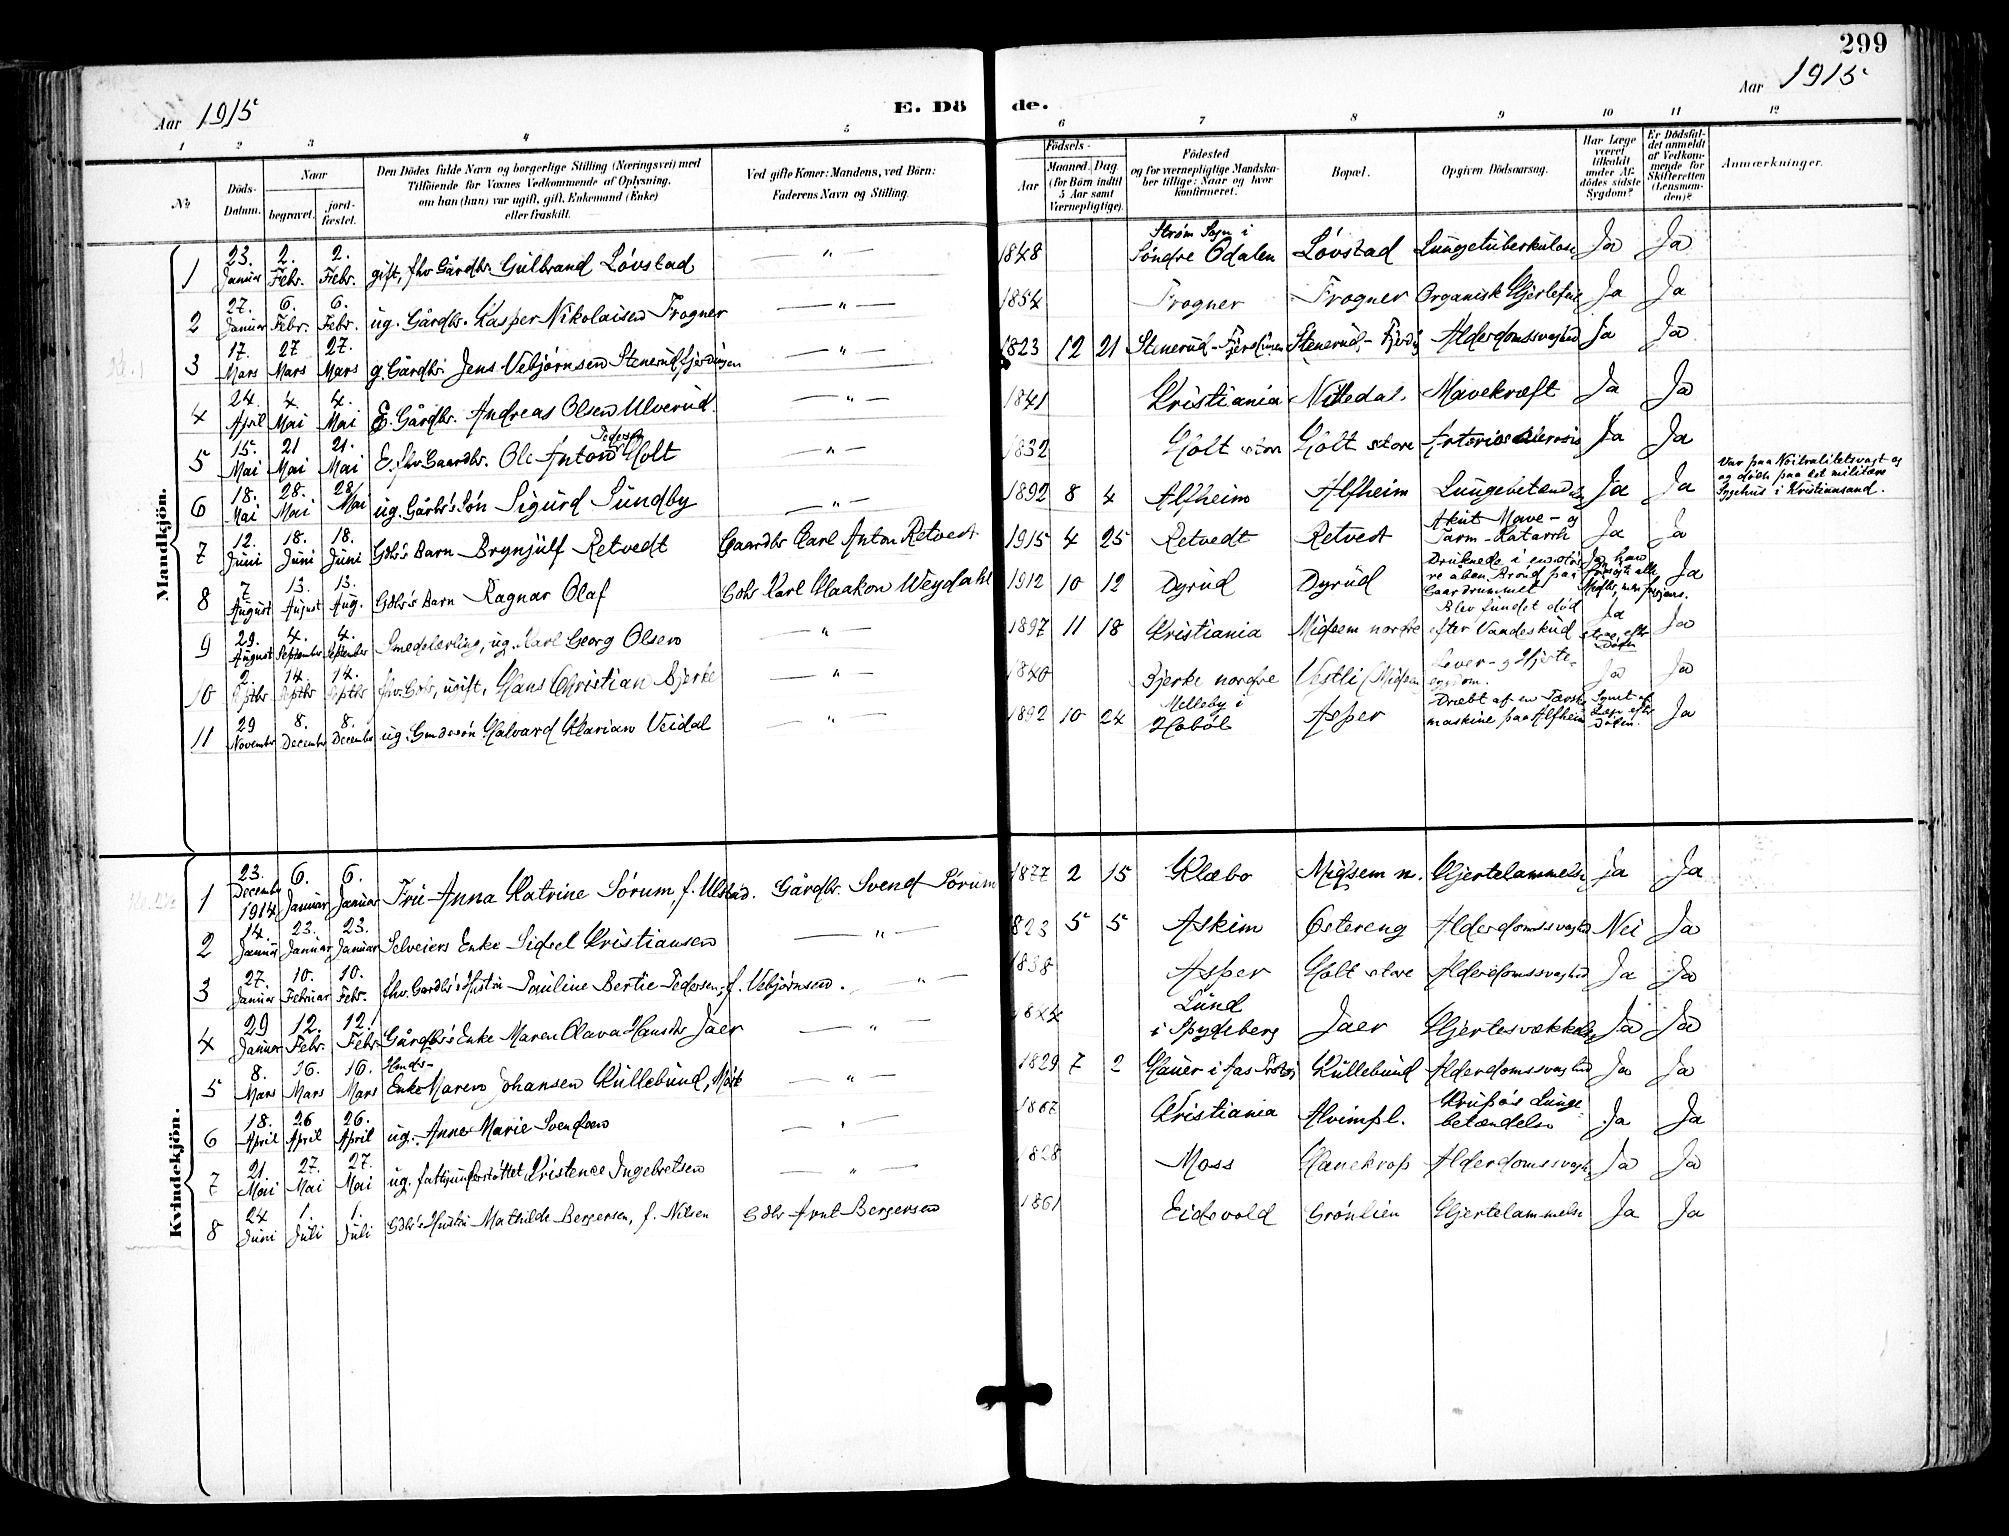 299
Aar 1915
E. Dö de.
Aar 1915
1 2 3 4 5 6 7 8 9 10 11 12
No.
Döds-Datum.
Naar
begravet.
jord-fæstet.
Den Dödes fulde Navn og borgerlige Stilling (Næringsvei) med
Tilföiende for Voxnes Vedkommende af Oplysning,
om han (hun) var ugift, gift, Enkemand (Enke)
eller fraskilt.
Ved gifte Koner: Mandens, ved Börn:
Faderens Navn og Stilling.
Födsels-
Aar
Maaned. Dag
(for Börn indtil
5 Aar samt
Værnepligtige).
Födested
og for værnepligtige Mandska-
ber tillige: Naar og hvor
konfirmeret.
Bopæl.
Opgiven Dödsaarsag.
Har Læge
været
tilkaldt
under Af-
dödes sidste
Sygdom?
Er Dödsfal-
det anmeldt
af Vedkom-
mende for
Skifteretten
(Lensman-
den)?
Anmærkninger.
Mandkjön.
1 23. Januar 2. Febr. 2. Febr. gift, fhv. Gårdbr. Gulbrand Lövstad — " — 1848 Ström Sogn i Söndre Odalen Lövstad Lungetuberkulose Ja Ja
2 27. Januar 6. Febr. 6. Febr. ug. Gårdbr. Kasper Nikolaisen Frogner — " — 1854 Frogner Frogner Organisk Hjertefeil Ja Ja
3 17. Mars 27 Mars 27. Mars g. Gårdbr. Jens Vebjörnsen Stenerud, Fjerdingen — " — 1823 12 21 Stenerud - Fjerdingen Stenerud, - Fjerding Alderdomssvaghed Ja Ja
4 24. April 4. Mai 4. Mai E. Gårdbr. Andreas Olsen Ulverud. — " — 1841 Kristiania Nittedal. Mavekræft Ja Ja
5 15. Mai 21 Mai 21. Mai E. fhv. Gaardbr. Ole Anton Pedersen Holt — " — 1832 Holt store Holt store Arteriosclerosis Ja Ja
6 18. Mai 28. Mai 28/Mai ug. Gårbr's Sön Sigurd Sundby — " — 1892 8 4 Alfheim Alfheim Lungebetændelse Ja Ja Var paa Nöitralitetsvagt og
og döde paa det militære
Sygehus i Kristiansand.
7 12. Juni 18. Juni 18. Juni Gbr's Barn Brynjulf Retvedt Gaardbr Carl Anton Retvedt 1915 4 25 Retvedt Retvedt Akut Mave- og Tarm-Katarrh Ja Ja
8 7 August 13. August 13. Aug. Gbr's Barn Ragnar Olaf Gbr Karl Haakon Weydahl 1912 10 12 Dyrud Dyrud Druknede i en större aben Brönd paa Gaardrummet Ja, han forsögte alle Midler, men forgjæves. Ja
9 29. August 4. September 4. September Smedelærling, ug. Karl Georg Olsen — " — 1897 11 18 Kristiania Midsem nordre Blev fundet död efter Vaadeskud Ja strax efter Döden Ja
10 2. Septbr 14. Septbr 14. Septbr fhv. Gbr, ugift, Hans Christian Bjerke — " — 1840 Bjerke nordre Vestli (Midsem Lever- og Hjertesygdom. Ja Ja
11 29 November 8. December 8. December ug. Gmdssön Halvard Klarian Veidal — " — 1892 10 24 Melleby i Hoböl Asper Dræbt af en Tærskemaskine paa Alfheim Synet af Læge efter Döden. Ja
Kvindekjön.
1 23. December 1914 6. Januar 6. Januar Fru Anna Katrine Sörum, f. Ulstad. Gårdbr. Svend Sörum 1877 2 15 Klæbo Midsem n. Hjertelammelse Ja Ja
2 14. Januar 23. Januar 23. Januar Selveiers Enke Sidsel Kristiansen — " — 1823 5 5 Askim Östereng Alderdomssvaghed Nei Ja
3 27. Januar 10. Februar 10. Febr. fhv. Gardbr's Hustru Pauline Bertie Pedersen, f. Vebjörnsen. — " — 1838 Asper Holt store Alderdomssvaghed Ja Ja
4 29 Januar 12. Febr. 12. Febr Gårdbr's Enke Maren Olava Hansdtr Jaer — " — 1844 Lund i Spydeberg Jaer Hjertesvækkelse Ja Ja
5 8. Mars 16. Mars 16. Mars Hmds- Enke Maren Johansen Kullebund, Mörk — " — 1829 7 2 Hauer i Aas Kullebund Alderdomssvaghed Ja Ja
6 18. April 26 April 26. April ug. Anne Marie Svendsen — " — 1867 Kristiania Alvimpl. Krupös Lungebetændelse Ja Ja
7 21. Mai 27. Mai 27. Mai ug. fattigunderstöttet Kristence Ingebretsen — " — 1828 Moss Hanekrop Alderdomssvagh. Ja Ja
8 24 Juni 1. Juli 1. Juli Gbr's Hustru Mathilde Bergersen, f. Nilsen Gbr Arnt Bergersen 1861 Eidsvold Grönlien Hjertelammelse Ja Ja